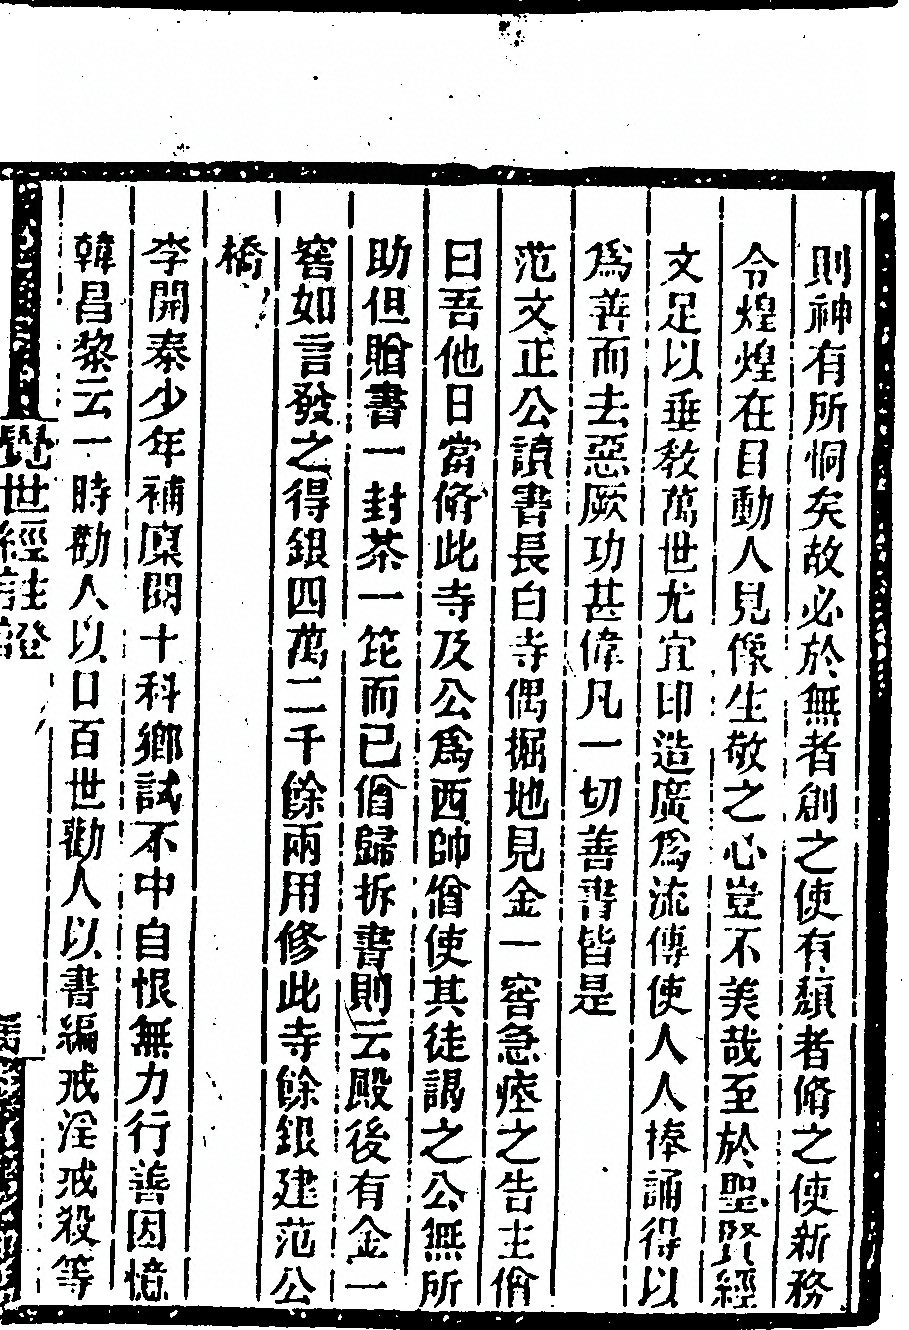 則神有所恫矣故必於無者創之使有頹者脩之使新務
令煌煌在目動人見像生敬之心豈不美哉至於聖賢經
文足以垂教萬世尤宜印造廣爲流傳使人人捧誦得以
爲善而去惡厥功甚偉凡一切善書皆是
范文正公讀書長白寺偶掘地見金一窖急瘞之告主僧
曰吾他日當脩此寺及公爲西帥僧使其徒謁之公無所
助但贈書一封茶一笓而已僧歸拆書則云殿後有金一
窖如言發之得銀四萬二千餘兩用修此寺餘銀建范公
橋
李開泰少年補廩閱十科鄉試不中自恨無力行善因憶
韓昌黎云一時勸人以口百世勸人以書編戒淫戒殺等
覺世經註證